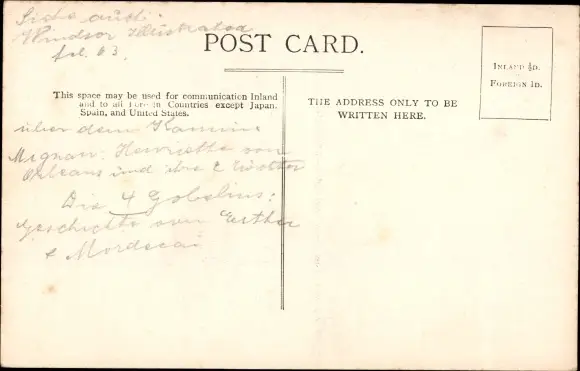 Siehe auch:
Windsor Illustrated
fol. 63.
POST CARD.
INLAND ½D.
FOREIGN 1D.
This space may be used for communication Inland
and to all Foreign Countries except Japan,
Spain, and United States.
THE ADDRESS ONLY TO BE
WRITTEN HERE.
über dem Kamine
Mignan: Henriette von
Orleans und ihre 2
Die 4 Gobelins:
Geschichte von Esther
& Mordecai